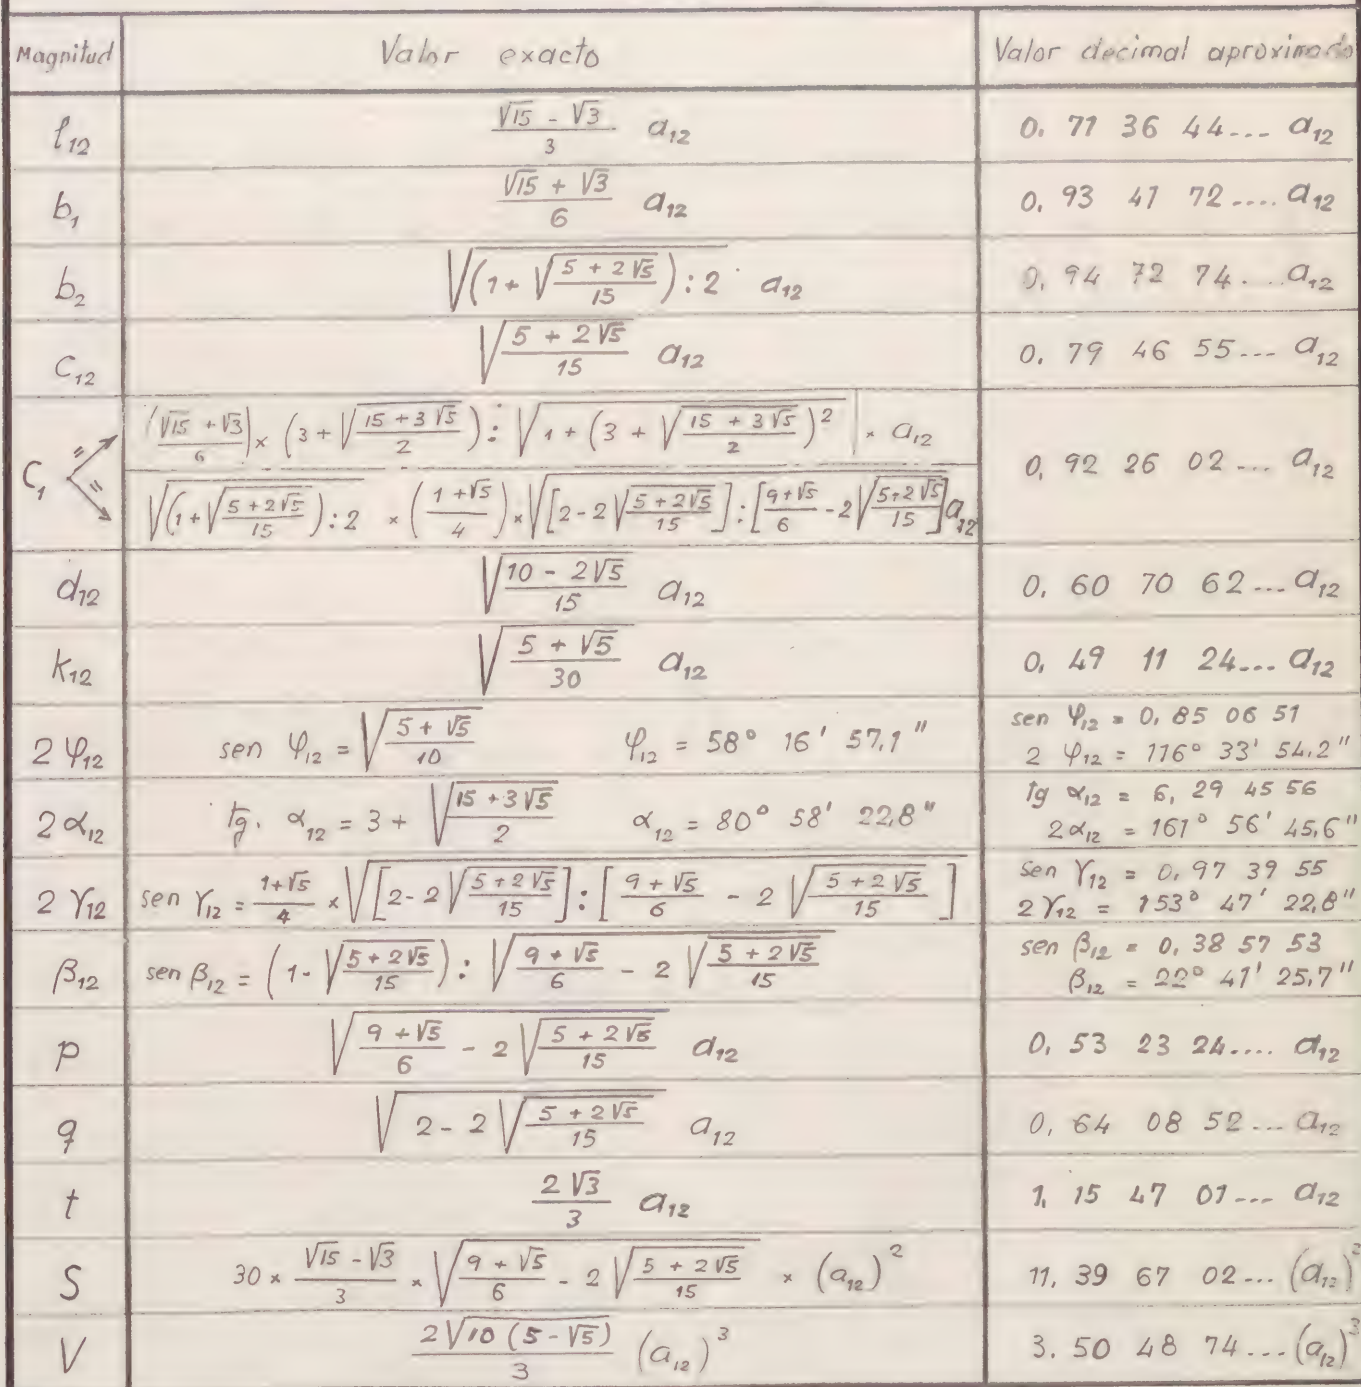 Magnitud Valor exacto Valor decimal aproximado
l₁₂ (√15 - √3)/3 a₁₂ 0, 71 36 44... a₁₂
b₁ (√15 + √3)/6 a₁₂ 0, 93 41 72.... a₁₂
b₂ √((1 + √((5 + 2√5)/15)) : 2) a₁₂ 0, 94 72 74....a₁₂
C₁₂ √((5 + 2√5)/15) a₁₂ 0. 79 46 55... a₁₂
C₁ = |(√15 + √3)/6| × (3 + √((15 + 3√5)/2)) : √(1 + (3 + √((15 + 3√5)/2))²) | × a₁₂ 0, 92 26 02... a₁₂
= √((1 + √((5 + 2√5)/15)) : 2) × ((1 + √5)/4) × √([2 - 2√((5 + 2√5)/15)] : [(9 + √5)/6 - 2√((5 + 2√5)/15)]) a₁₂
d₁₂ √((10 - 2√5)/15) a₁₂ 0, 60 70 62... a₁₂
K₁₂ √((5 + √5)/30) a₁₂ 0, 49 11 24... a₁₂
2 φ₁₂ sen φ₁₂ = √((5 + √5)/10) φ₁₂ = 58° 16' 57,1" sen φ₁₂ = 0, 85 06 51
2 φ₁₂ = 116° 33' 54,2"
2 α₁₂ tg. α₁₂ = 3 + √((15 + 3√5)/2) α₁₂ = 80° 58' 22,8" tg α₁₂ = 6, 29 45 56
2α₁₂ = 161° 56' 45,6"
2 γ₁₂ sen γ₁₂ = (1+√5)/4 × √([2 - 2√((5 + 2√5)/15)] : [(9 + √5)/6 - 2√((5 + 2√5)/15)]) sen γ₁₂ = 0, 97 39 55
2 γ₁₂ = 153° 47' 22,8"
β₁₂ sen β₁₂ = (1 - √((5 + 2√5)/15)) : √((9 + √5)/6 - 2√((5 + 2√5)/15)) sen β₁₂ = 0, 38 57 53
β₁₂ = 22° 41' 25,7"
p √((9 + √5)/6 - 2√((5 + 2√5)/15)) a₁₂ 0, 53 23 24.... a₁₂
q √(2 - 2√((5 + 2√5)/15)) a₁₂ 0, 64 08 52... a₁₂
t 2√3/3 a₁₂ 1, 15 47 01... a₁₂
S 30 × (√15 - √3)/3 × √((9 + √5)/6 - 2√((5 + 2√5)/15)) × (a₁₂)² 11, 39 67 02... (a₁₂)²
V 2√(10 (5 - √5))/3 (a₁₂)³ 3. 50 48 74...(a₁₂)³